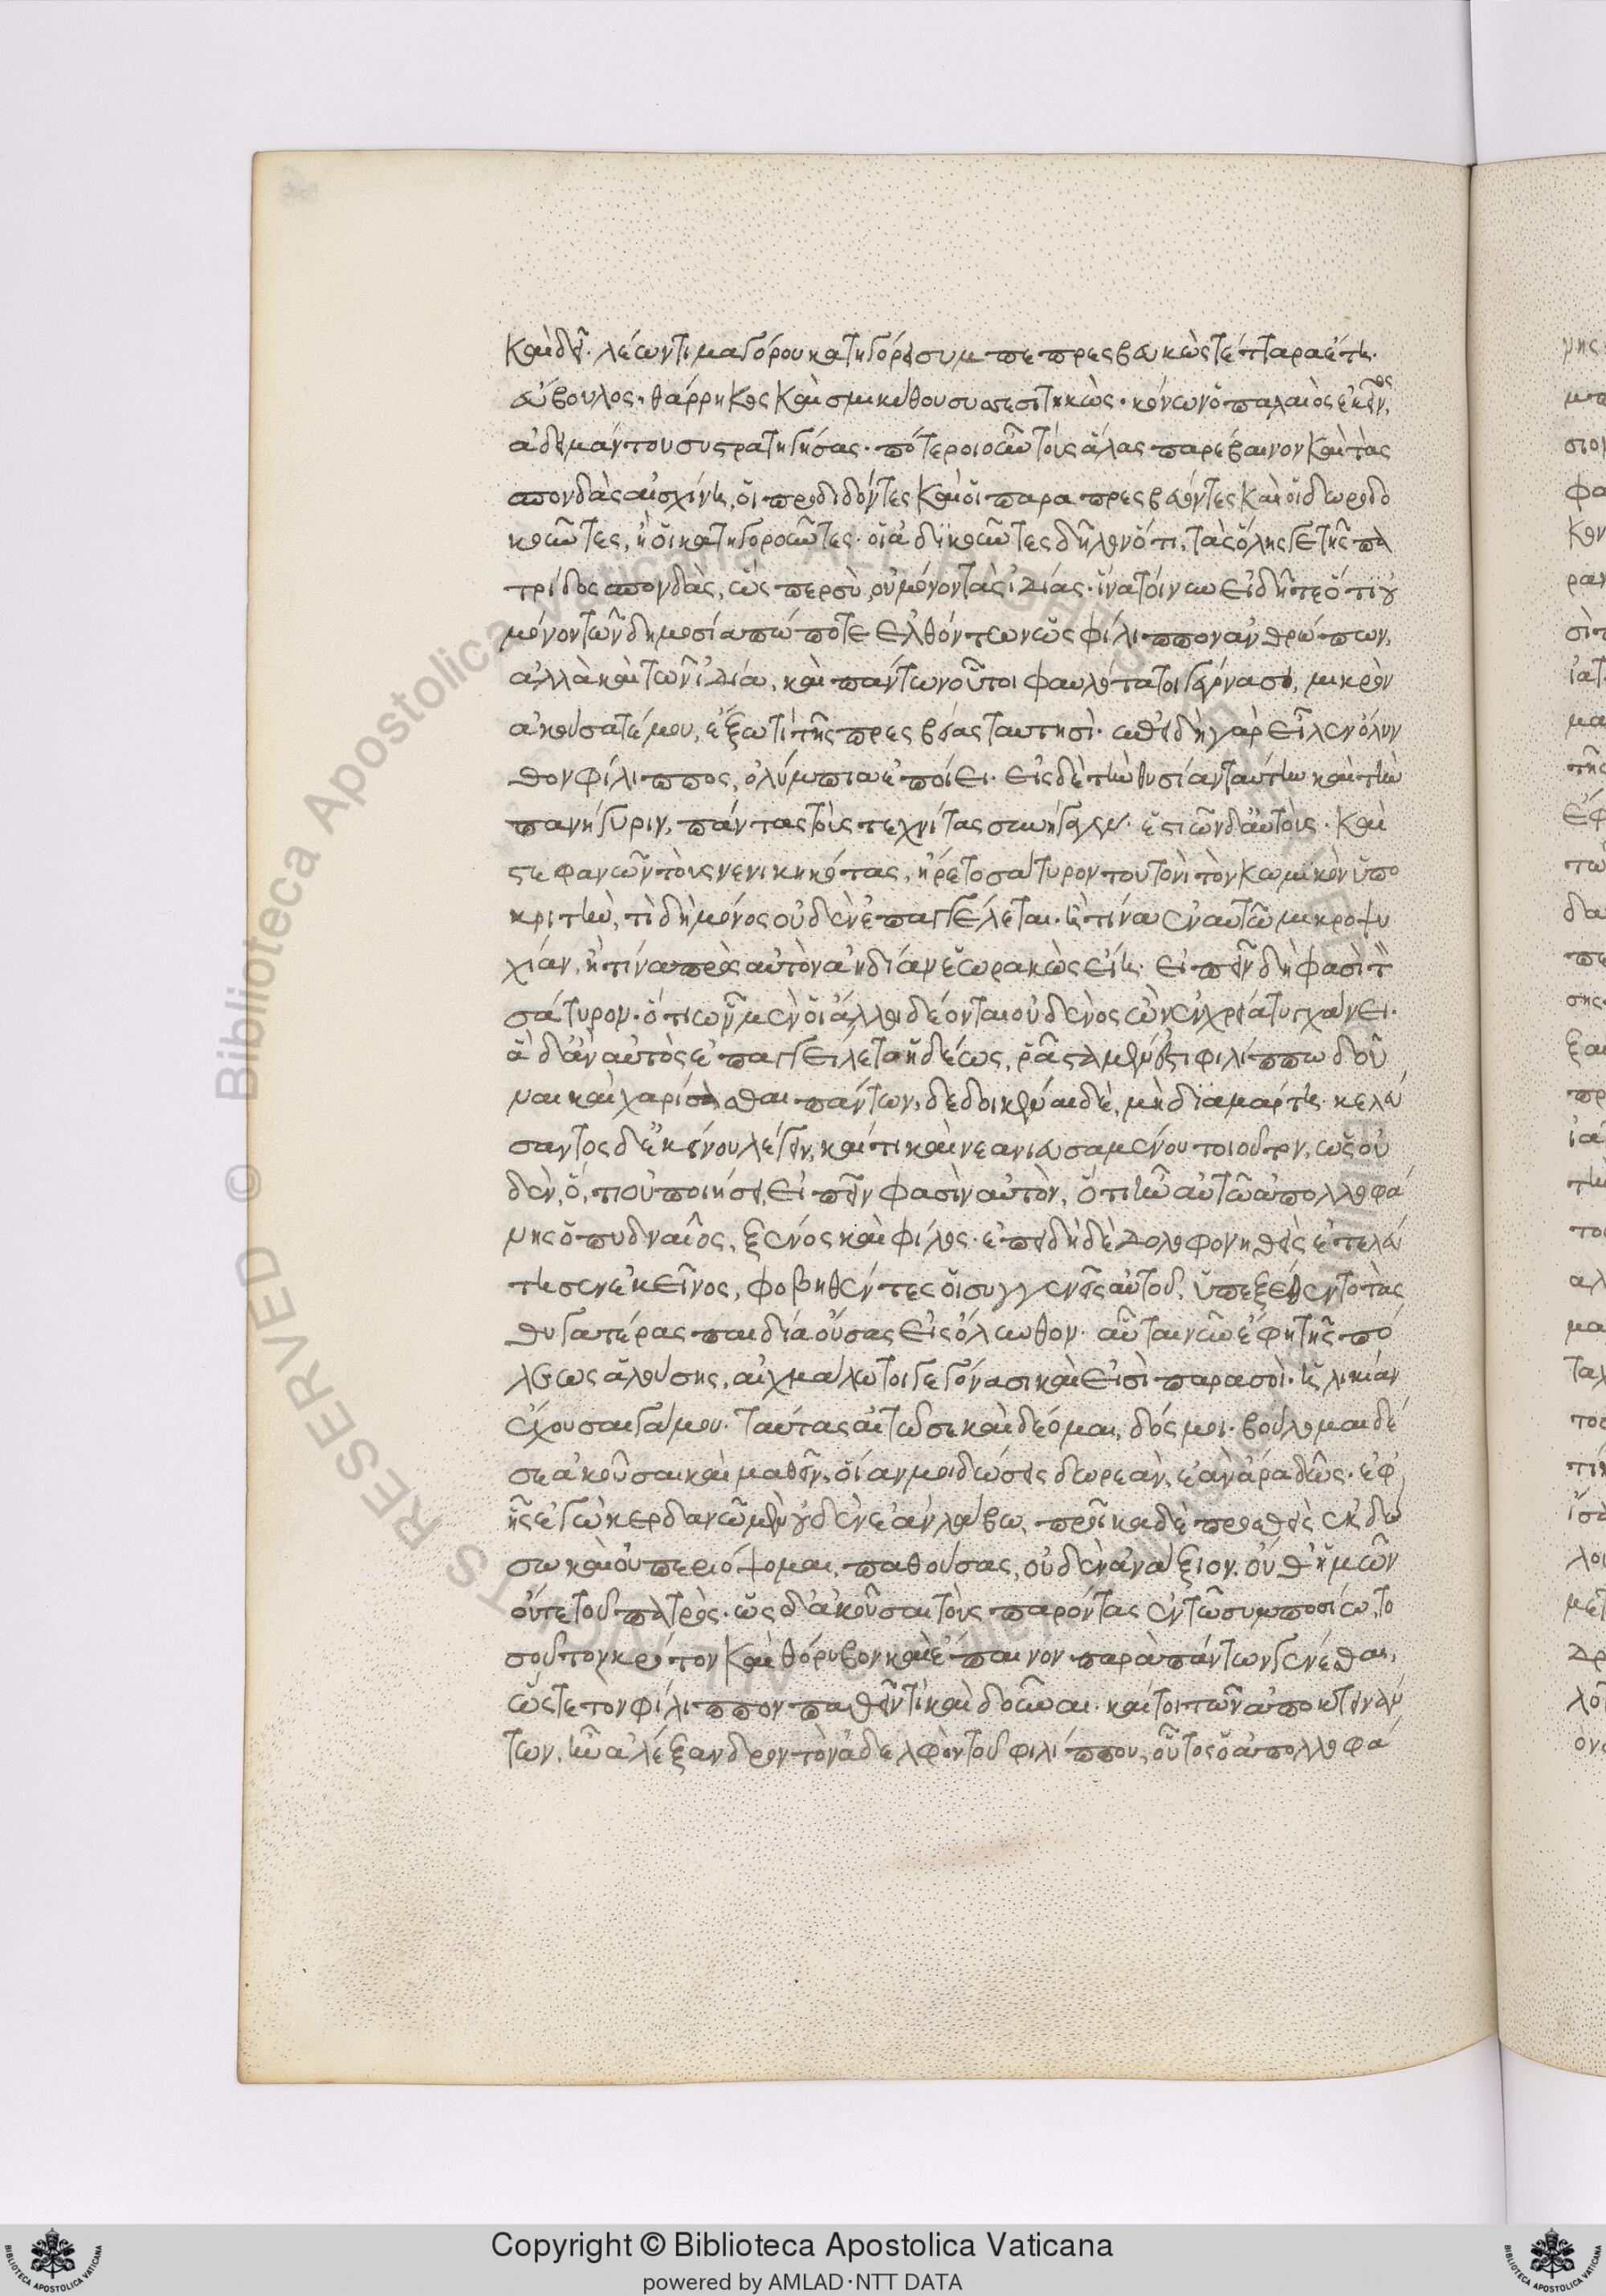 καὶ δεῖ· λέων τιμαγόρου κατηγόρει συμπεπρεσβευκὼς τέτταρα ἔτη·
εὔβουλος θάρρηκος καὶ σμικύθου συσσεσιτηκώς· κόνων ὁ παλαιὸς ἐκεῖνος,
ἀδειμάντου συστρατηγήσας· πότεροι οὖν τοὺς ἅλας παρέβαινον καὶ τὰς
σπονδὰς αἰσχίνη, οἱ προδιδόντες καὶ οἱ παραπρεσβεύοντες καὶ οἱ δωροδο
κοῦντες, ἢ οἱ κατηγοροῦντες· οἱ ἀδικοῦντες δῆλον ὅτι, τὰς ὅλης γε τῆς πα
τρίδος σπονδὰς, ὥσπερ σὺ, οὐ μόνον τὰς ἰδίας· ἵνα τοίνυν εἰδῆτε ὅτι οὐ
μόνον τῶν δημοσία πώποτε ἐλθόντων ὡς φίλιππον ἀνθρώπων,
ἀλλὰ καὶ τῶν ἰδία, καὶ πάντων οὗτοι φαυλότατοι γεγόνασι, μικρὸν
ἀκούσατέ μου, ἔξω τι τῆς πρεσβείας ταυτησί· ἐπειδὴ γὰρ εἷλεν ὄλυν
θον φίλιππος, ὀλύμπια ἐποίει· εἰς δὲ τὴν θυσίαν ταύτην καὶ τὴν
πανήγυριν, πάντας τοὺς τεχνίτας συνήγαγεν· ἑστιῶν δ' αὐτοὺς· καὶ
στεφανῶν τοὺς νενικηκότας, ἤρετο σάτυρον τουτονὶ τὸν κωμικὸν ὑπο
κριτὴν, τί δὴ μόνος οὐδὲν ἐπαγγέλεται· ἤ τινα ἐν αὐτῶ μικροψυ
χίαν, ἤ τινα πρὸς αὐτὸν ἀηδίαν ἑωρακὼς εἴη· εἰπεῖν δή φασι τὸν
σάτυρον· ὅτι ὧν μὲν οἱ ἄλλοι δέονται οὐδενὸς ὢν ἐν χρεία τυγχάνει·
ἃ δ' ἂν αὐτὸς ἐπαγγείλεται ἡδέως, ῥᾶστα μέν ἐστι φιλίππω δοῦ
ναι καὶ χαρίσασθαι πάντων, δέδοικε δὲ, μὴ διαμάρτη· κελεύ
σαντος δ' ἐκείνου λέγειν, καί τι καὶ νεανιευσαμένου τοιοῦτον, ὡς οὐ
δὲν, ὅ, τι οὐ ποιήσει, εἰπεῖν φασὶν αὐτὸν, ὅτι ἦν αὐτῶ ἀπολλοφά
νης ὁ πυδναῖος, ξένος καὶ φίλος· ἐπειδὴ δὲ δολοφονηθεὶς ἐτελεύ
τησεν ἐκεῖνος, φοβηθέντες οἱ συγγενεῖς αὐτοῦ, ὑπεξέθεντο τὰς
θυγατέρας παιδία οὔσας εἰς ὄλυνθον· αὗται νῦν ἔφη τῆς πό
λεως ἁλούσης, αἰχμάλωτοι γεγόνασι καὶ εἰσὶ παρὰ σοὶ· ἡλικίαν
ἔχουσαι γάμου· ταύτας αἰτῶ σε καὶ δέομαι, δός μοι· βούλομαι δέ
σε ἀκοῦσαι καὶ μαθεῖν, οἵαν μοι δώσεις δωρεὰν, ἐὰν ἄρα δῶς· ἐφ'
ἧς ἐγὼ κερδανῶ μὲν οὐδὲν ἐὰν λάβω, προῖκα δὲ προσθεὶς ἐκδώ
σω καὶ οὐ περιόψομαι, παθούσας, οὐδὲν ἀνάξιον, οὔθ' ἡμῶν
οὔτε τοῦ πατρός· ὡς δ' ἀκοῦσαι τοὺς παρόντας ἐν τῶ συμποσίω, το
σοῦτον κρότον καὶ θόρυβον καὶ ἔπαινον παρὰ πάντων γενέσθαι,
ὥστε τὸν φίλιππον παθεῖν τι καὶ δοῦναι· καίτοι τῶν ἀποκτεινάν
των, ἦν ἀλέξανδρον τὸν ἀδελφὸν τοῦ φιλίππου, οὗτος ὁ ἀπολλοφά
Copyright © Biblioteca Apostolica Vaticana
powered by AMLAD·NTT DATA